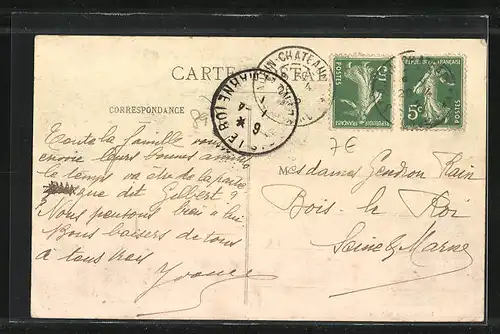 CARTE POSTALE
CORRESPONDANCE
Toute la famille vous
envoie leurs bonnes amitiés
le temps va être de la partie
que dit Gilbert ?
Nous pensons bien à lui
Bons baisers de tous
à tous trois
Yvonne
RÉPUBLIQUE FRANÇAISE
POSTES
5c
RÉPUBLIQUE FRANÇAISE
POSTES
7E
Mesdames Gendron Rain
Bois-le Roi
Seine & Marne